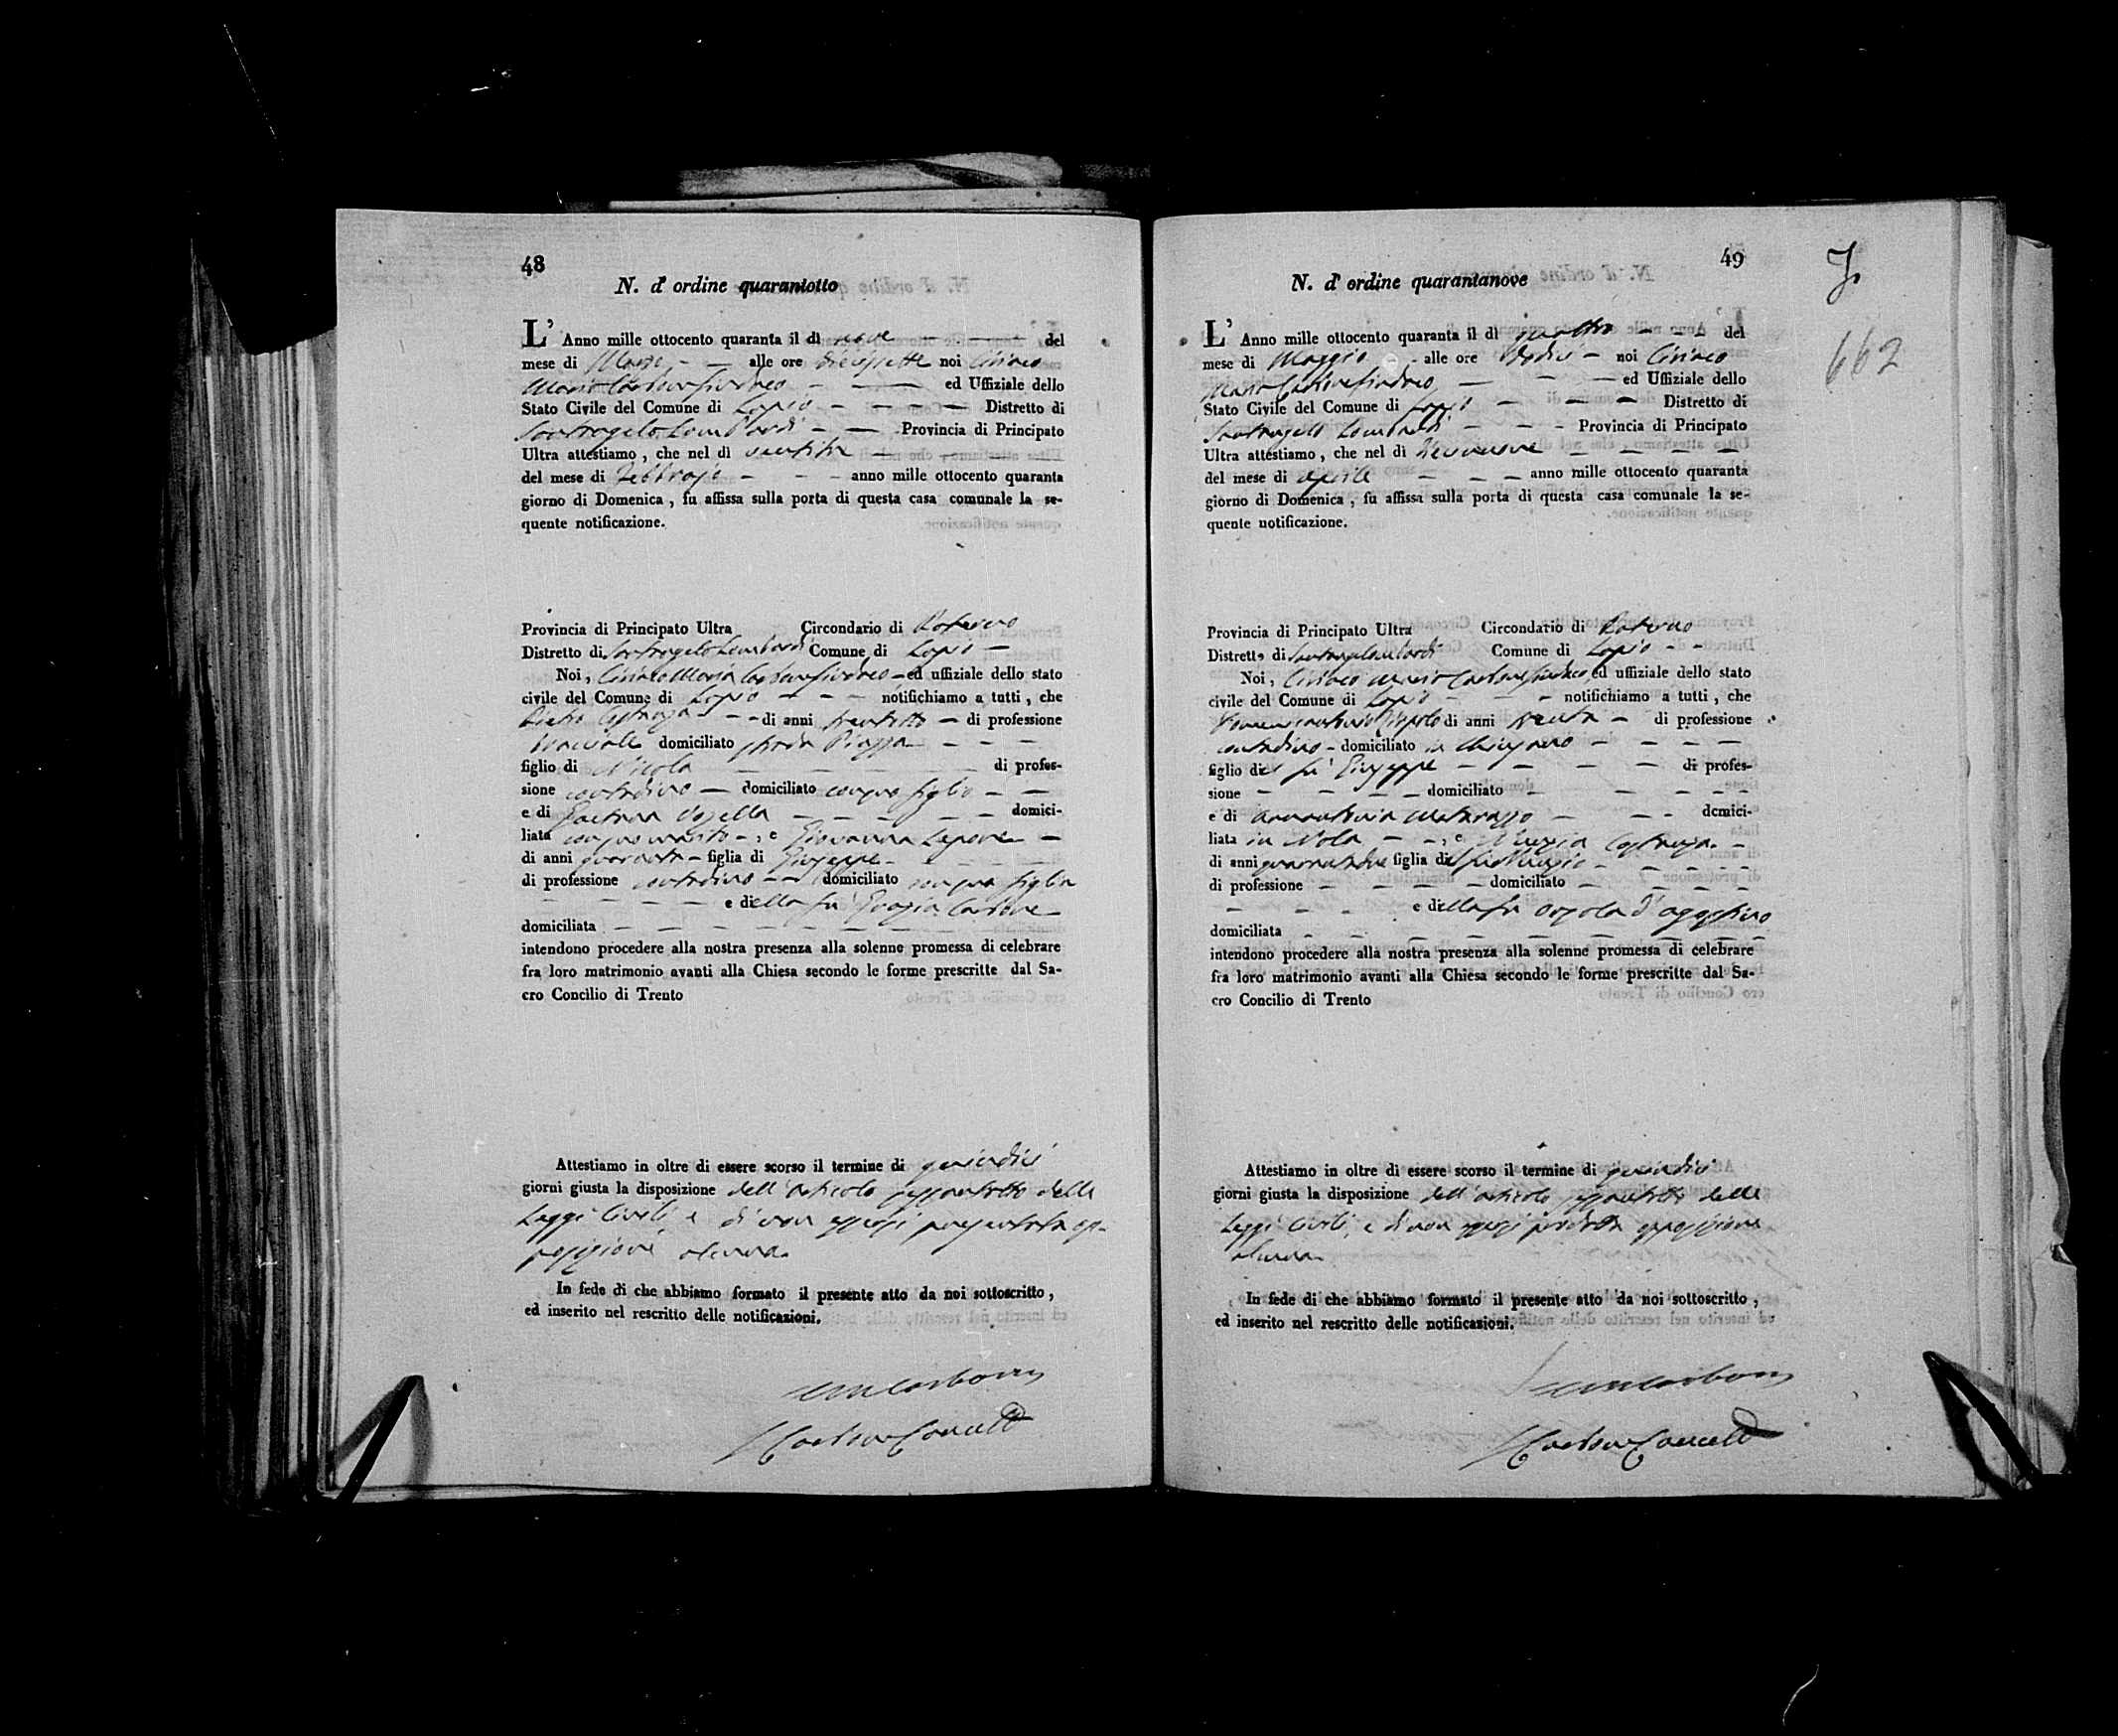 48
N. d' ordine quarantotto
L' Anno mille ottocento quaranta il dì nove del
mese di Marzo alle ore diecissette noi Ciriaco
Maria Carbone Sindaco ed Uffiziale dello
Stato Civile del Comune di Lapio Distretto di
Santangelo Lombardi Provincia di Principato
Ultra attestiamo, che nel dì ventitre
del mese di Febbrajo anno mille ottocento quaranta
giorno di Domenica, fu affissa sulla porta di questa casa comunale la se-
quente notificazione.
Provincia di Principato Ultra Circondario di Paterno
Distretto di Santangelo Lombardi Comune di Lapio
Noi, Ciriaco Maria Carbone Sindaco ed uffiziale dello stato
civile del Comune di Lapio notifichiamo a tutti, che
Pietro Castruzza di anni trentotto di professione
bracciale domiciliato strada Piazza
figlio di Nicola di profes-
sione contadino domiciliato con suo figlio
e di Gaetana domici-
liata con suo marito, e Giovanna Lepore
di anni quaranta figlia di Giuseppe
di professione contadino domiciliato con sua figlia
e della fu Grazia Carbone
domiciliata
intendono procedere alla nostra presenza alla solenne promessa di celebrare
fra loro matrimonio avanti alla Chiesa secondo le forme prescritte dal Sa-
cro Concilio di Trento
Attestiamo in oltre di essere scorso il termine di quindici
giorni giusta la disposizione dell'articolo sessantotto delle
Leggi Civili, e di non essersi presentata op-
posizione alcuna.
In fede di che abbiamo formato il presente atto da noi sottoscritto,
ed inserito nel rescritto delle notificazioni.
CM Carbone
Carbone Cancell
49
N. d' ordine quarantanove
662
L' Anno mille ottocento quaranta il dì quattro del
mese di Maggio alle ore dodici noi Ciriaco
Maria Carbone Sindaco ed Uffiziale dello
Stato Civile del Comune di Lapio Distretto di
Santangelo Lombardi Provincia di Principato
Ultra attestiamo, che nel dì diecinove
del mese di aprile anno mille ottocento quaranta
giorno di Domenica, fu affissa sulla porta di questa casa comunale la se-
quente notificazione.
Provincia di Principato Ultra Circondario di Paterno
Distretto di Santangelo Lombardi Comune di Lapio
Noi, Ciriaco Maria Carbone Sindaco ed uffiziale dello stato
civile del Comune di Lapio notifichiamo a tutti, che
di anni trenta di professione
contadino domiciliato in
figlio del fu Giuseppe di profes-
sione domiciliato
e di Annantonia Matarazzo domici-
liata in Nola, e Nunzia Castruzza
di anni quarantadue figlia del fu Nunzio
di professione domiciliato
e della fu Orsola d'agostino
domiciliata
intendono procedere alla nostra presenza alla solenne promessa di celebrare
fra loro matrimonio avanti alla Chiesa secondo le forme prescritte dal Sa-
cro Concilio di Trento
Attestiamo in oltre di essere scorso il termine di quindici
giorni giusta la disposizione dell'articolo sessantotto delle
Leggi Civili, e di non essersi prodotta opposizione
alcuna.
In fede di che abbiamo formato il presente atto da noi sottoscritto,
ed inserito nel rescritto delle notificazioni.
CM Carbone
Carbone Cancell